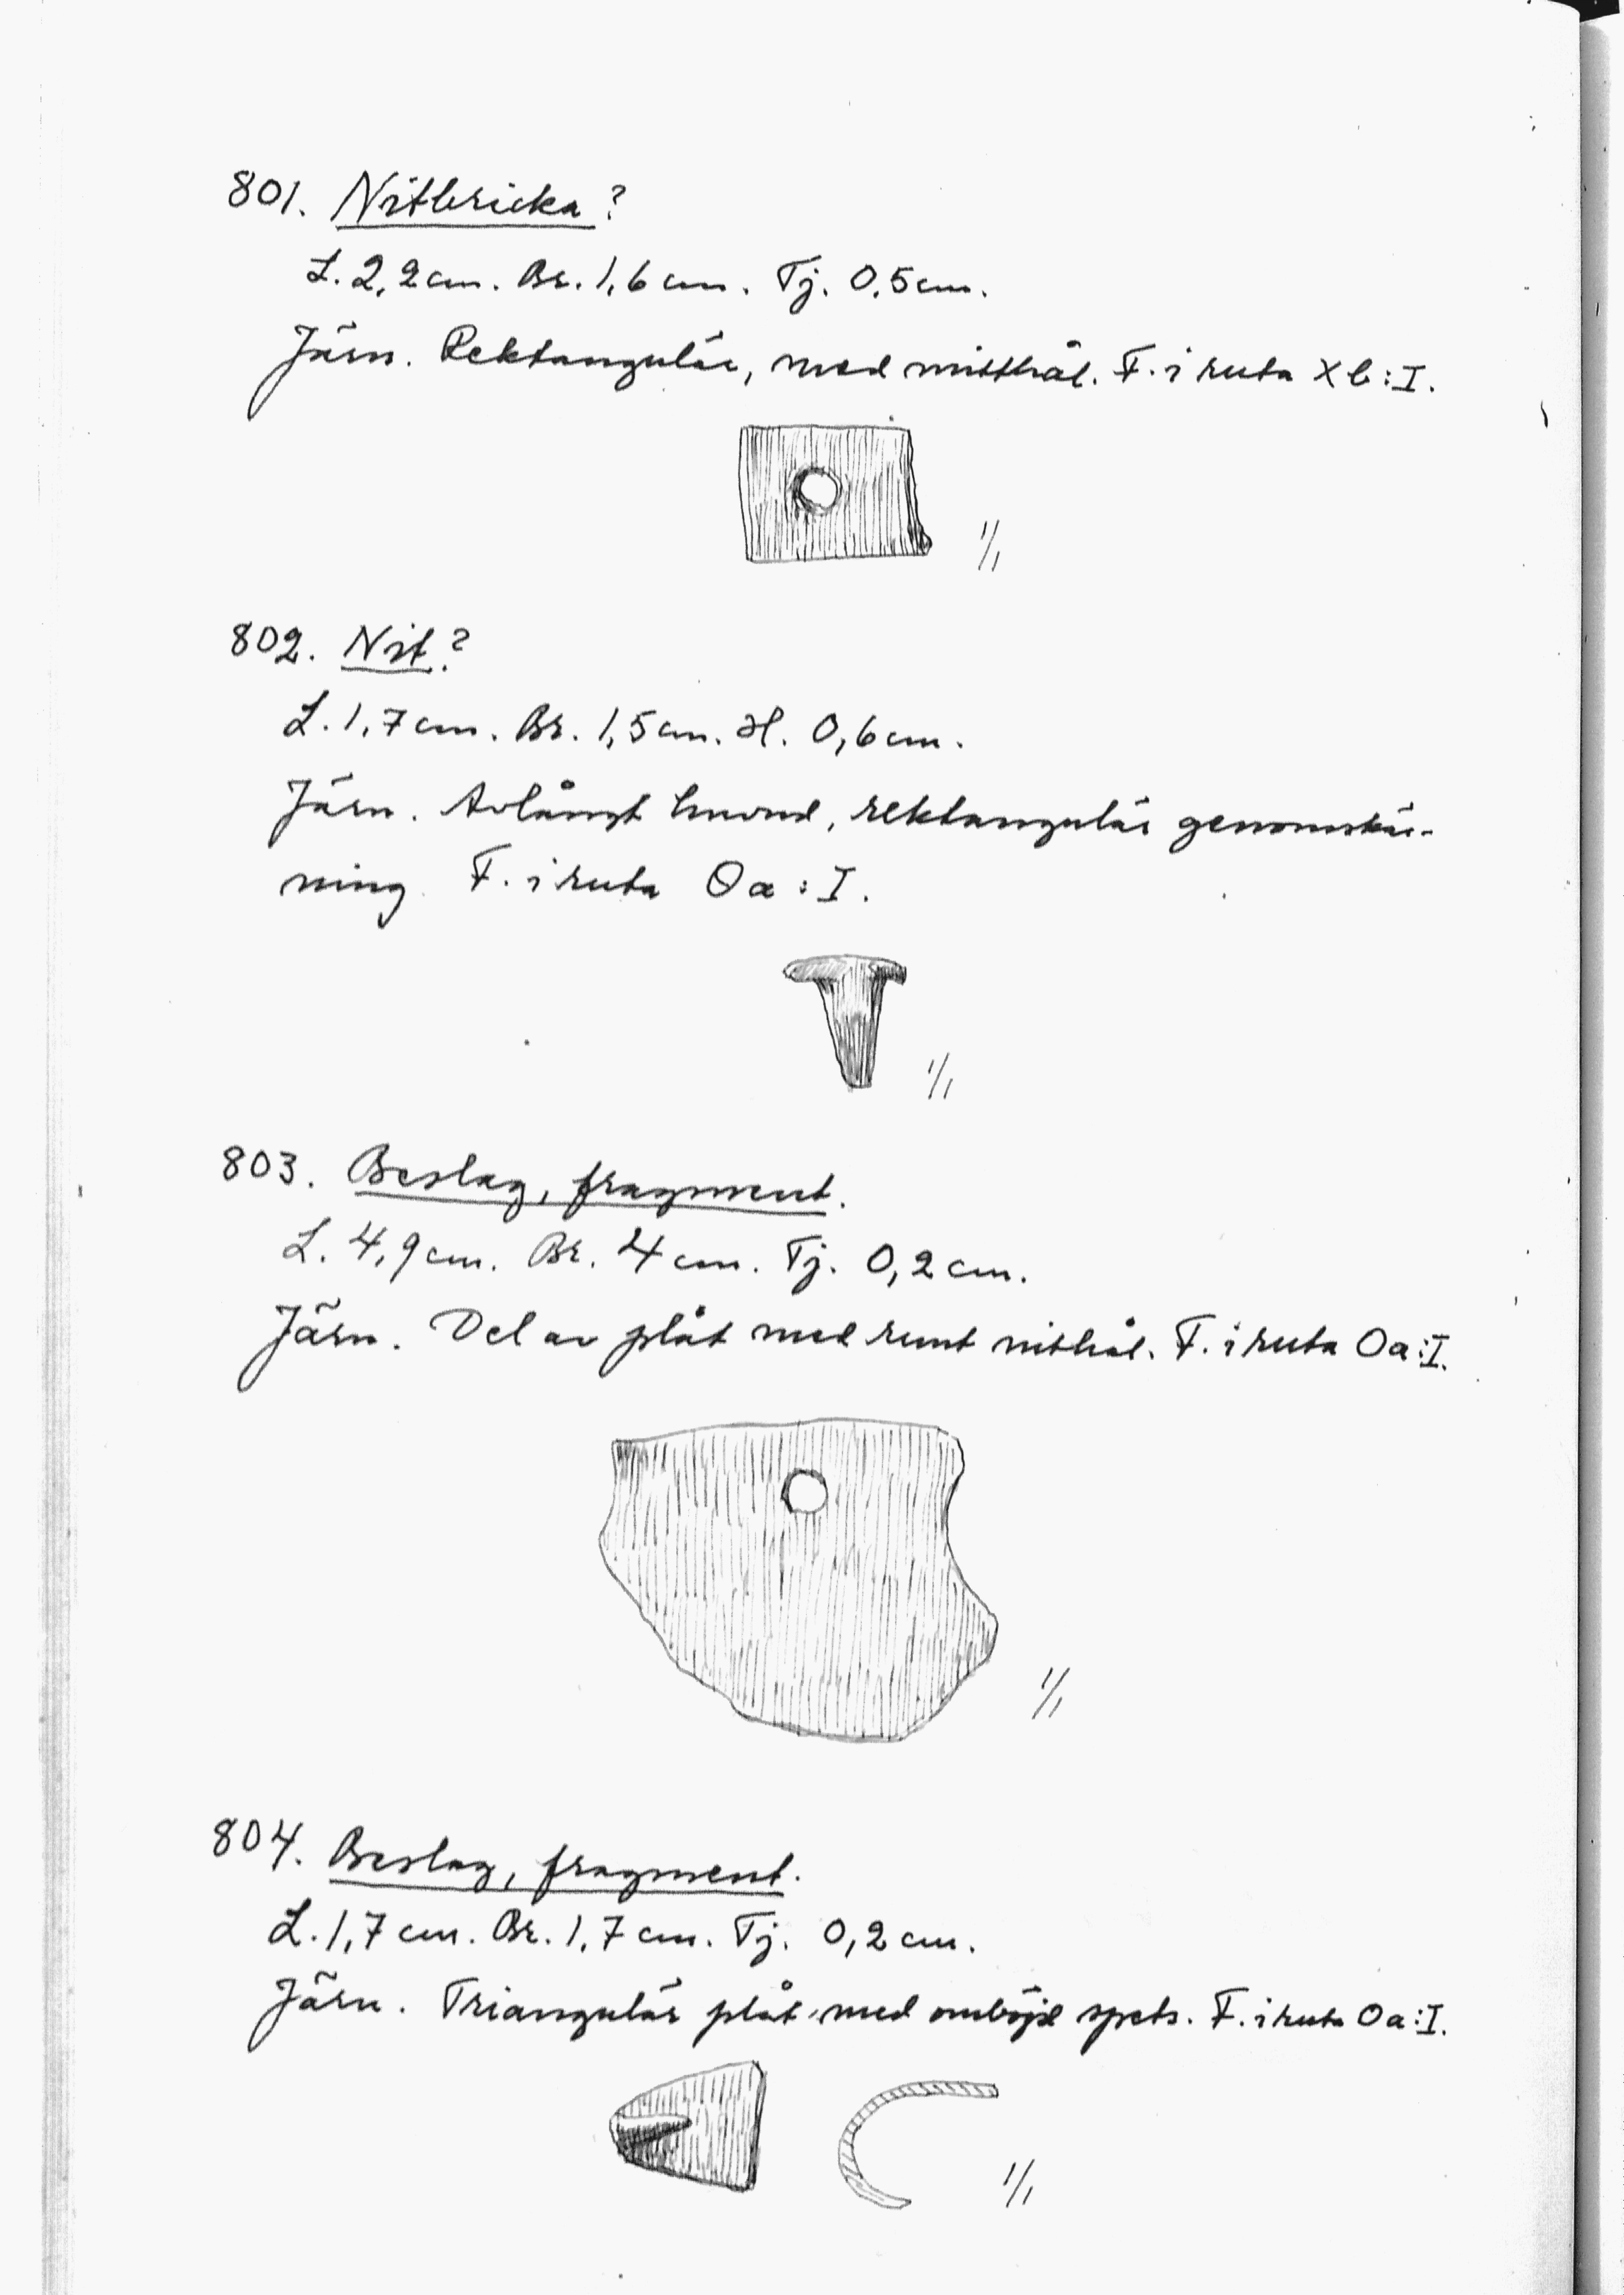 801. Nitbricka?
L. 2,2 cm. Br. 1,6 cm. Tj. 0,5 cm.
Järn. Rektangulär, med mitthål. F. i ruta Xb:I.
1/1
802. Nit?
L. 1,7 cm. Br. 1,5 cm. H. 0,6 cm.
Järn. Avlångt huvud, rektangulär genomskär-
ning. F. i ruta Oa:I.
1/1
803. Beslag, fragment.
L. 4,9 cm. Br. 4 cm. Tj. 0,2 cm.
Järn. Del av plåt med runt nithål. F. i ruta Oa:I.
1/1
804. Beslag, fragment.
L. 1,7 cm. Br. 1,7 cm. Tj. 0,2 cm.
Järn. Triangulär plåt med omböjd spets. F. i ruta Oa:I.
1/1